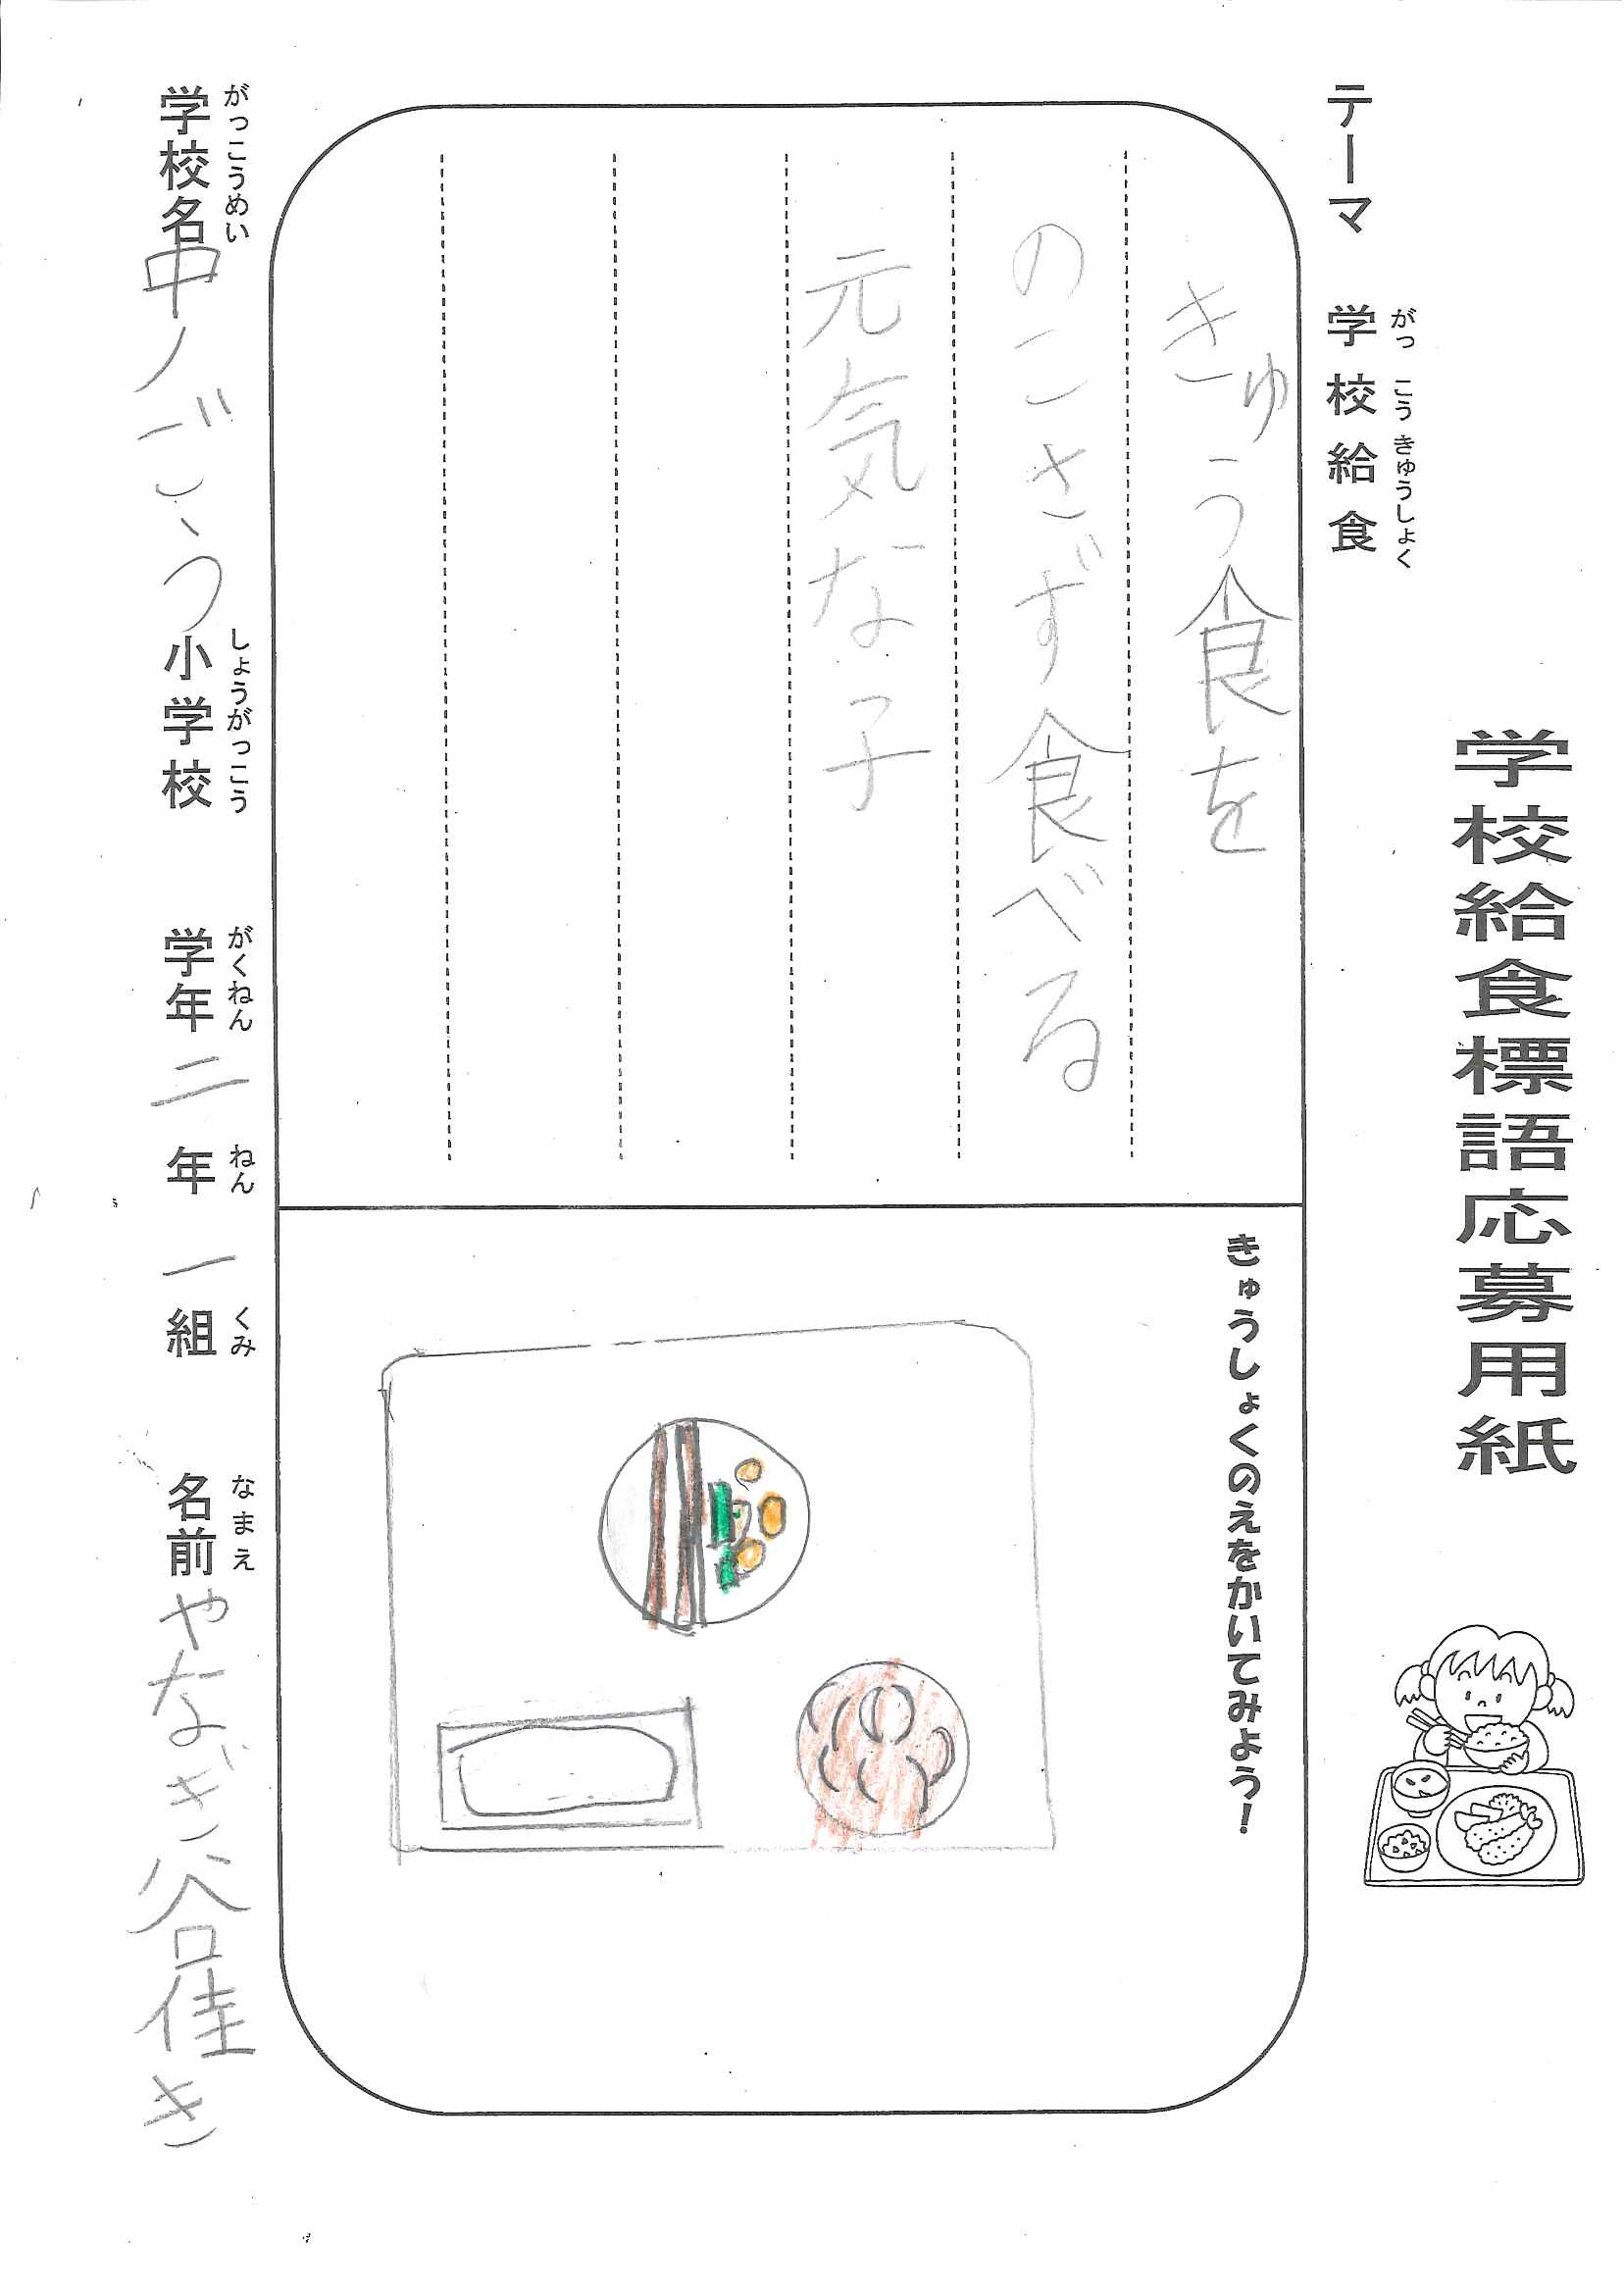 学校給食標語応募用紙
テーマ 学校給食
がっ こう きゅうしょく
きゅう食を
のこさず食べる
元気な子
きゅうしょくのえをかいてみよう！
がっこうめい しょうがっこう がくねん ねん くみ なまえ
学校名 中ノごう 小学校 学年 二 年 一 組 名前 やなぎ谷佳き